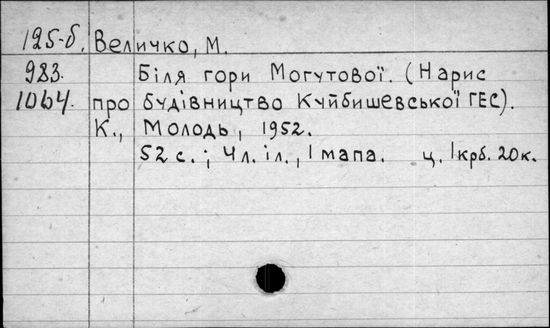 125-б. Величко, М.
983. Біля гори Могутової. (Нарис
1064. про будівництво Куйбишевської ГЕС).
К., Молодь, 1952.
52 с.; 4 л. іл., 1 мапа. ц. 1 крб. 20 к.